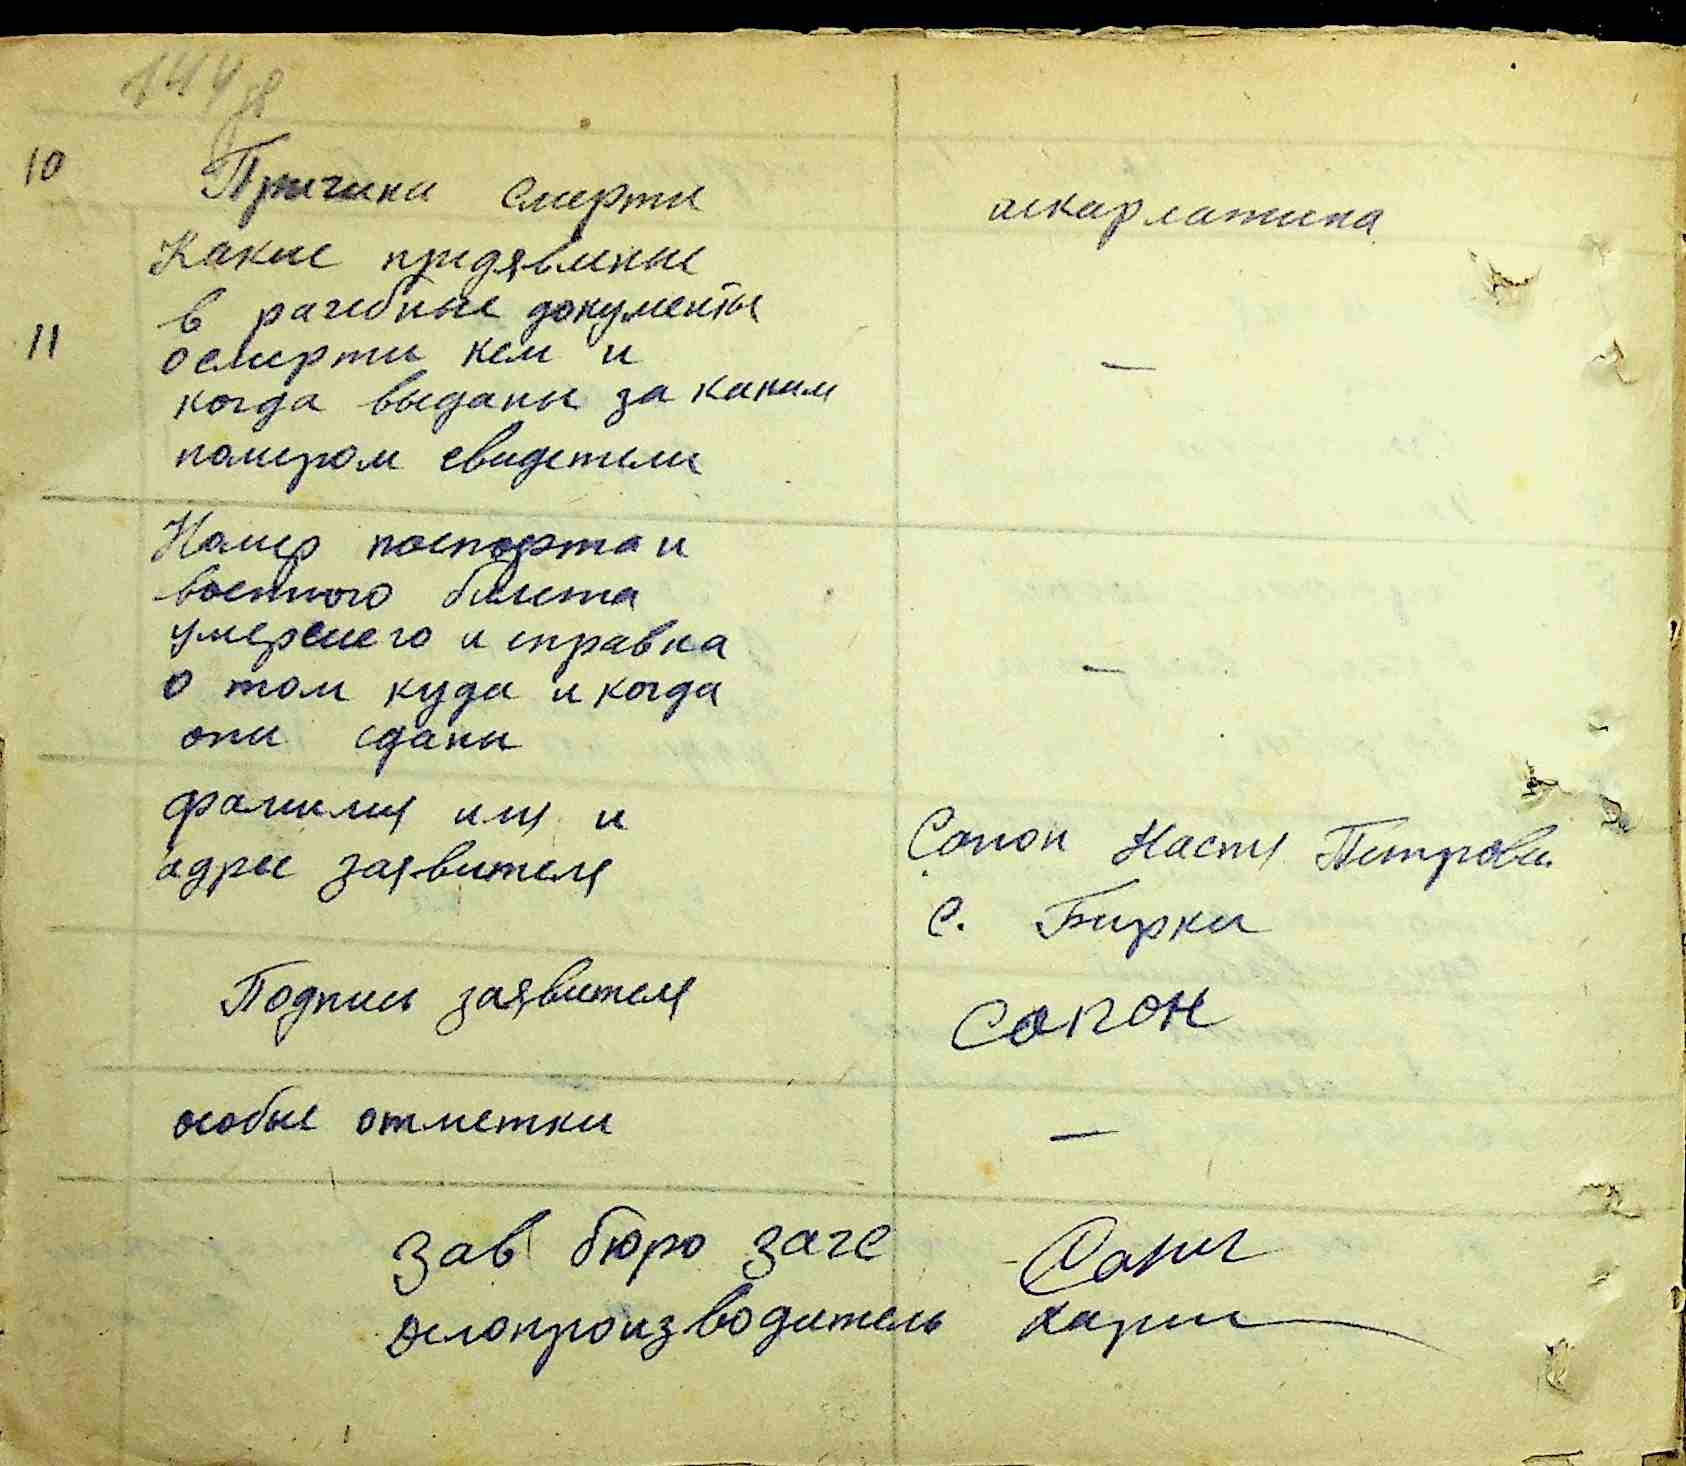 10 Причина смерти скарлатина
Какие придявлены
в рачебные документы
11 осмерти кем и —
когда выданы за каким
номером свидетели
Номер поспорта и
военного билета
умершего и справка
о том куда и когда —
они сданы
фамилия имя и Сопон Настя Петровн.
адрес заявителя с. Бирки
Подпись заявителя Сопон
особые отметки —
Зав бюро загс
делопроизводитель